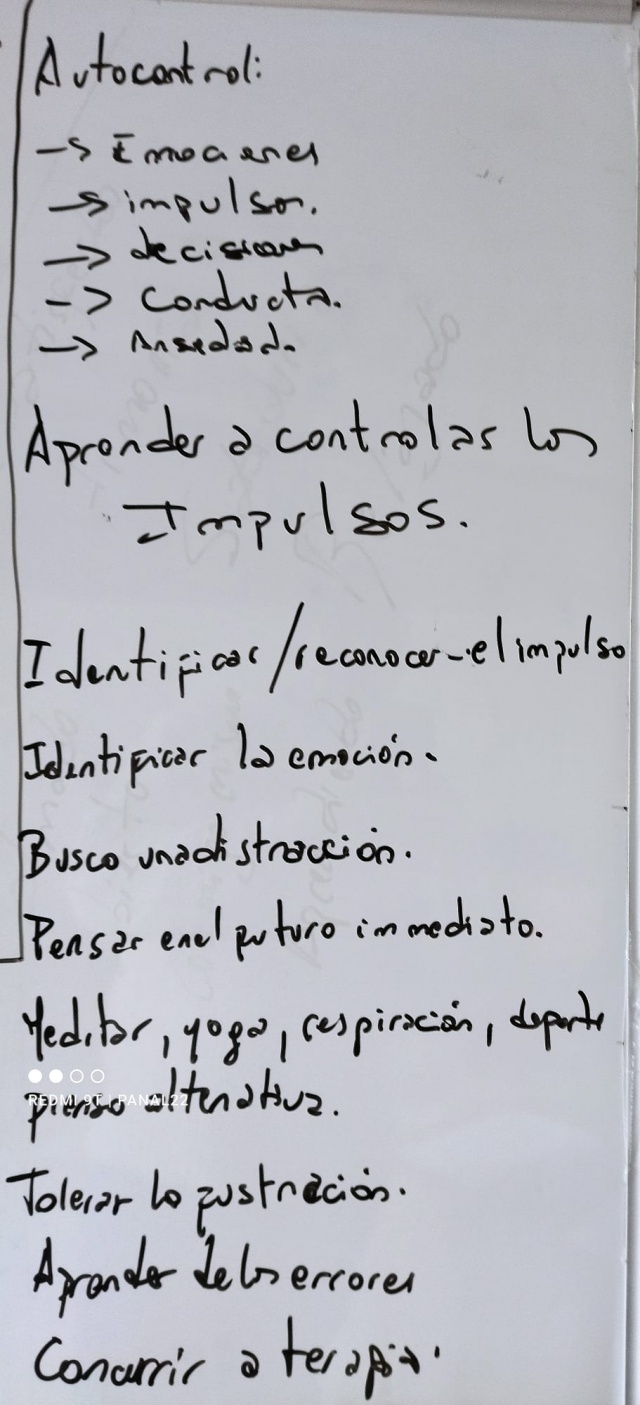 Autocontrol:
→ Emociones
→ impulsos.
→ decisiones
→ Conducta.
→ Ansiedad.
Aprender a controlas los
Impulsos.
Identificar/reconocer-el impulso
Identificar la emoción.
Busco una distracción.
Pensar en el futuro immediato.
Meditar, yoga, respiración, deporte
pienso alternativa.
REDMI 9T | PANAL22
Tolerar la frustración.
Aprender de los errores
Concurrir a terapia.